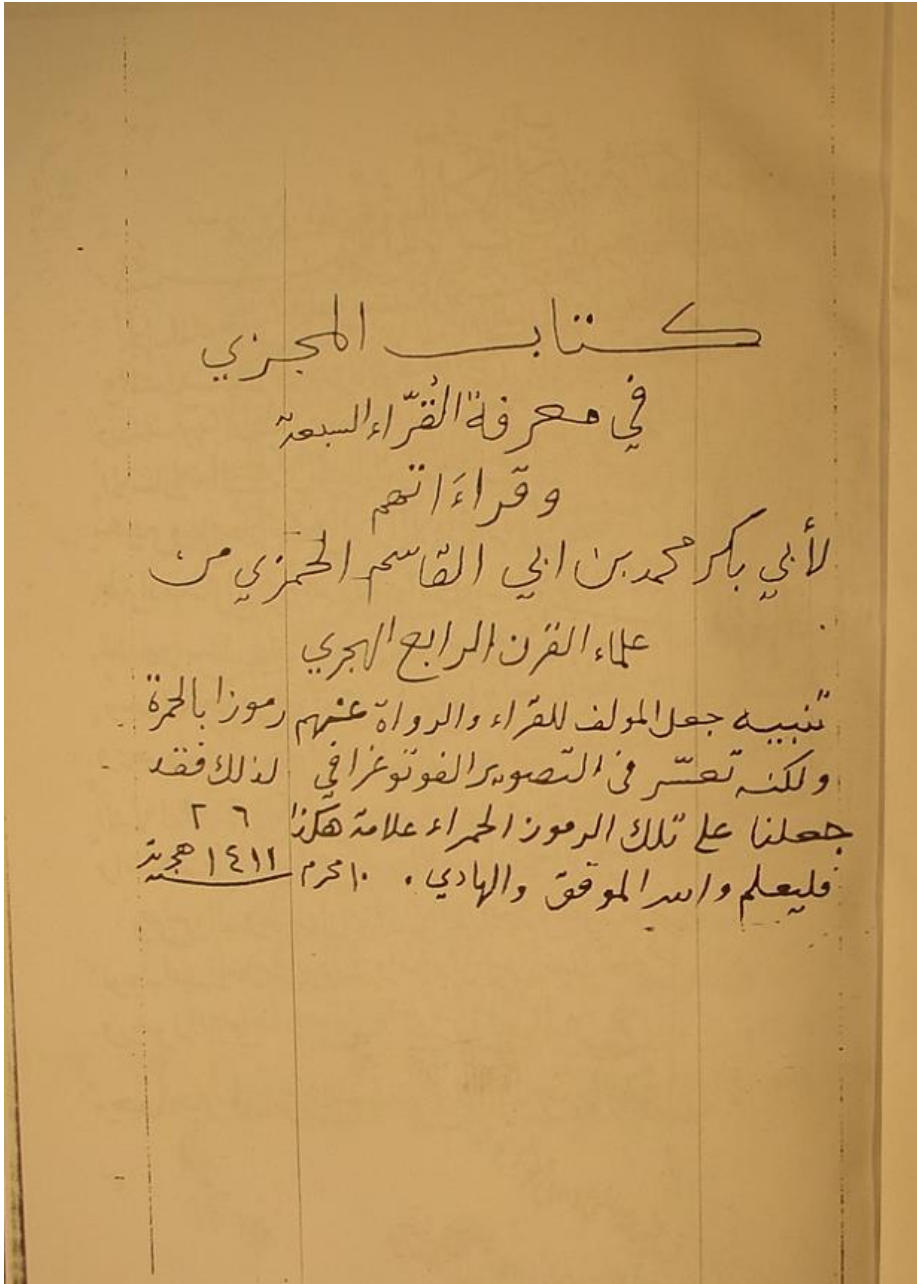 كتاب المجزي
في معرفة القُرّاء السبعة
وقراءَاتهم
لأبي بكر محمد بن ابي القاسم الحمزي من
علماء القرن الرابع الهجري
تنبيه جعل المولف للقراء والرواة عنهم رموزا بالحمرة
ولكنه تعسّر في التصوير الفوتوغرافي لذلك فقد
جعلنا على تلك الرموز الحمراء علامة هكذا ٦ ٢
فليعلم والله الموفق والهادي. ١٠ محرم ١٤١١ هجرية